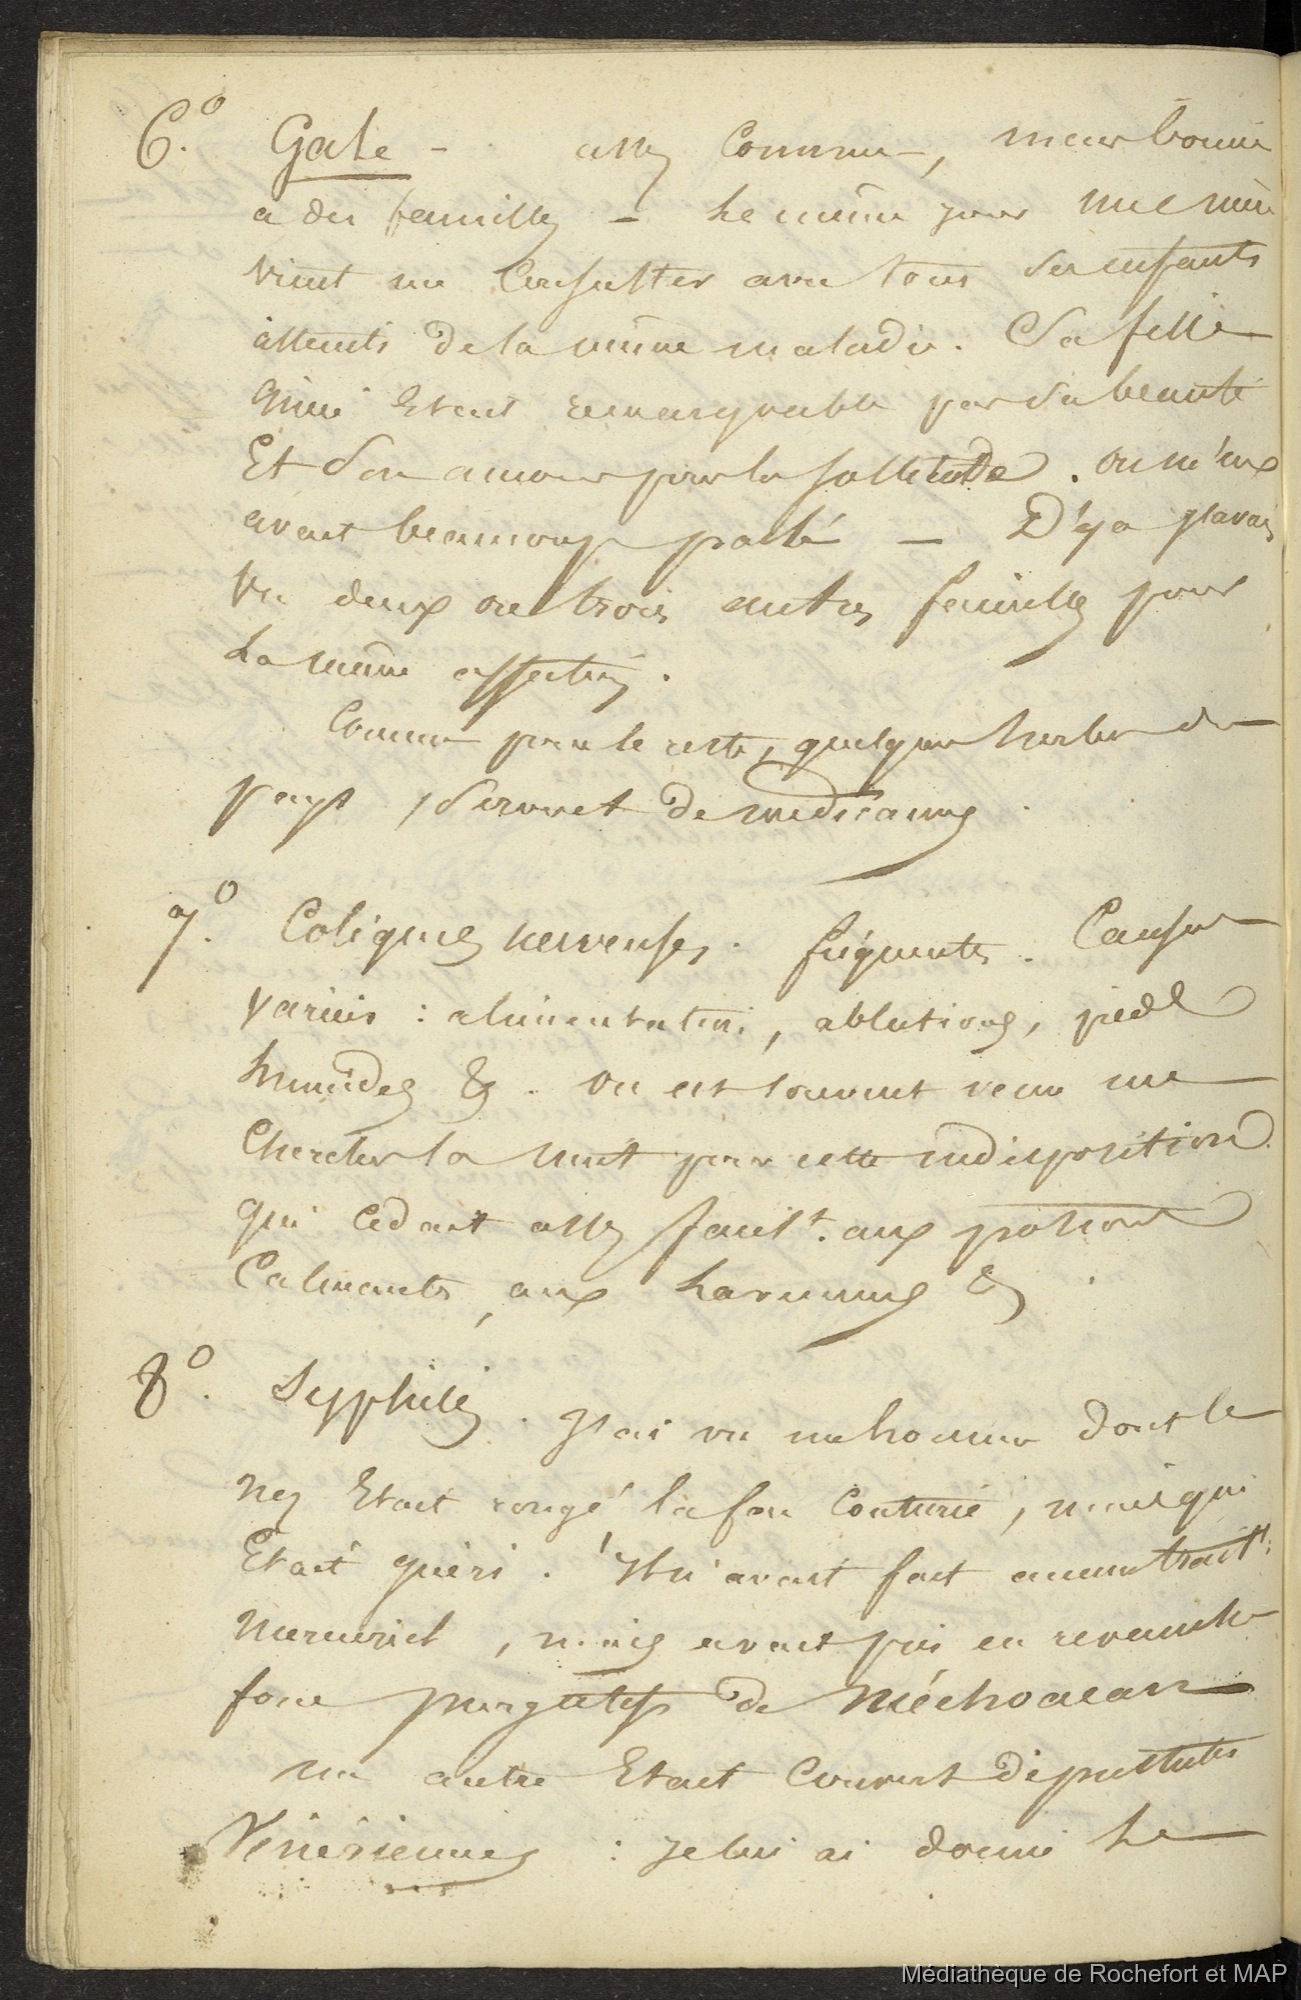 6.° Gale - assez commune, mais bornée
à des familles – le même jour une mère
vint me consulter avec tous ses enfants
atteints de la même maladie. Sa fille
ainée était remarquable par sa beauté
Et son amour pour la sollitude. on m'en
avait beaucoup parlé – Déja j'avais
vu deux ou trois autres familles pour
la même affection.
Comme pour le reste, quelques herbes du
pays, servent de médicaments.
7.° Coliques nerveuses. fréquentes. Causes
variées : alimentation, ablutions, pieds
humides &. on est souvent venu me
chercher la nuit pour cette indisposition
qui cédait assez facilt. aux potions
calmantes, aux lavements &.
8.° Syphilis. J'ai vu un homme dont le
nez était rongé la face couturée, mais qui
Etait guéri. Il n'avait fait aucun trait.t
mercuriel, mais avait pris en revanche
force purgatifs de Méchoacan
un autre était couvert de pustules
Vénériennes : je lui ai donné le
Médiathèque de Rochefort et MAP